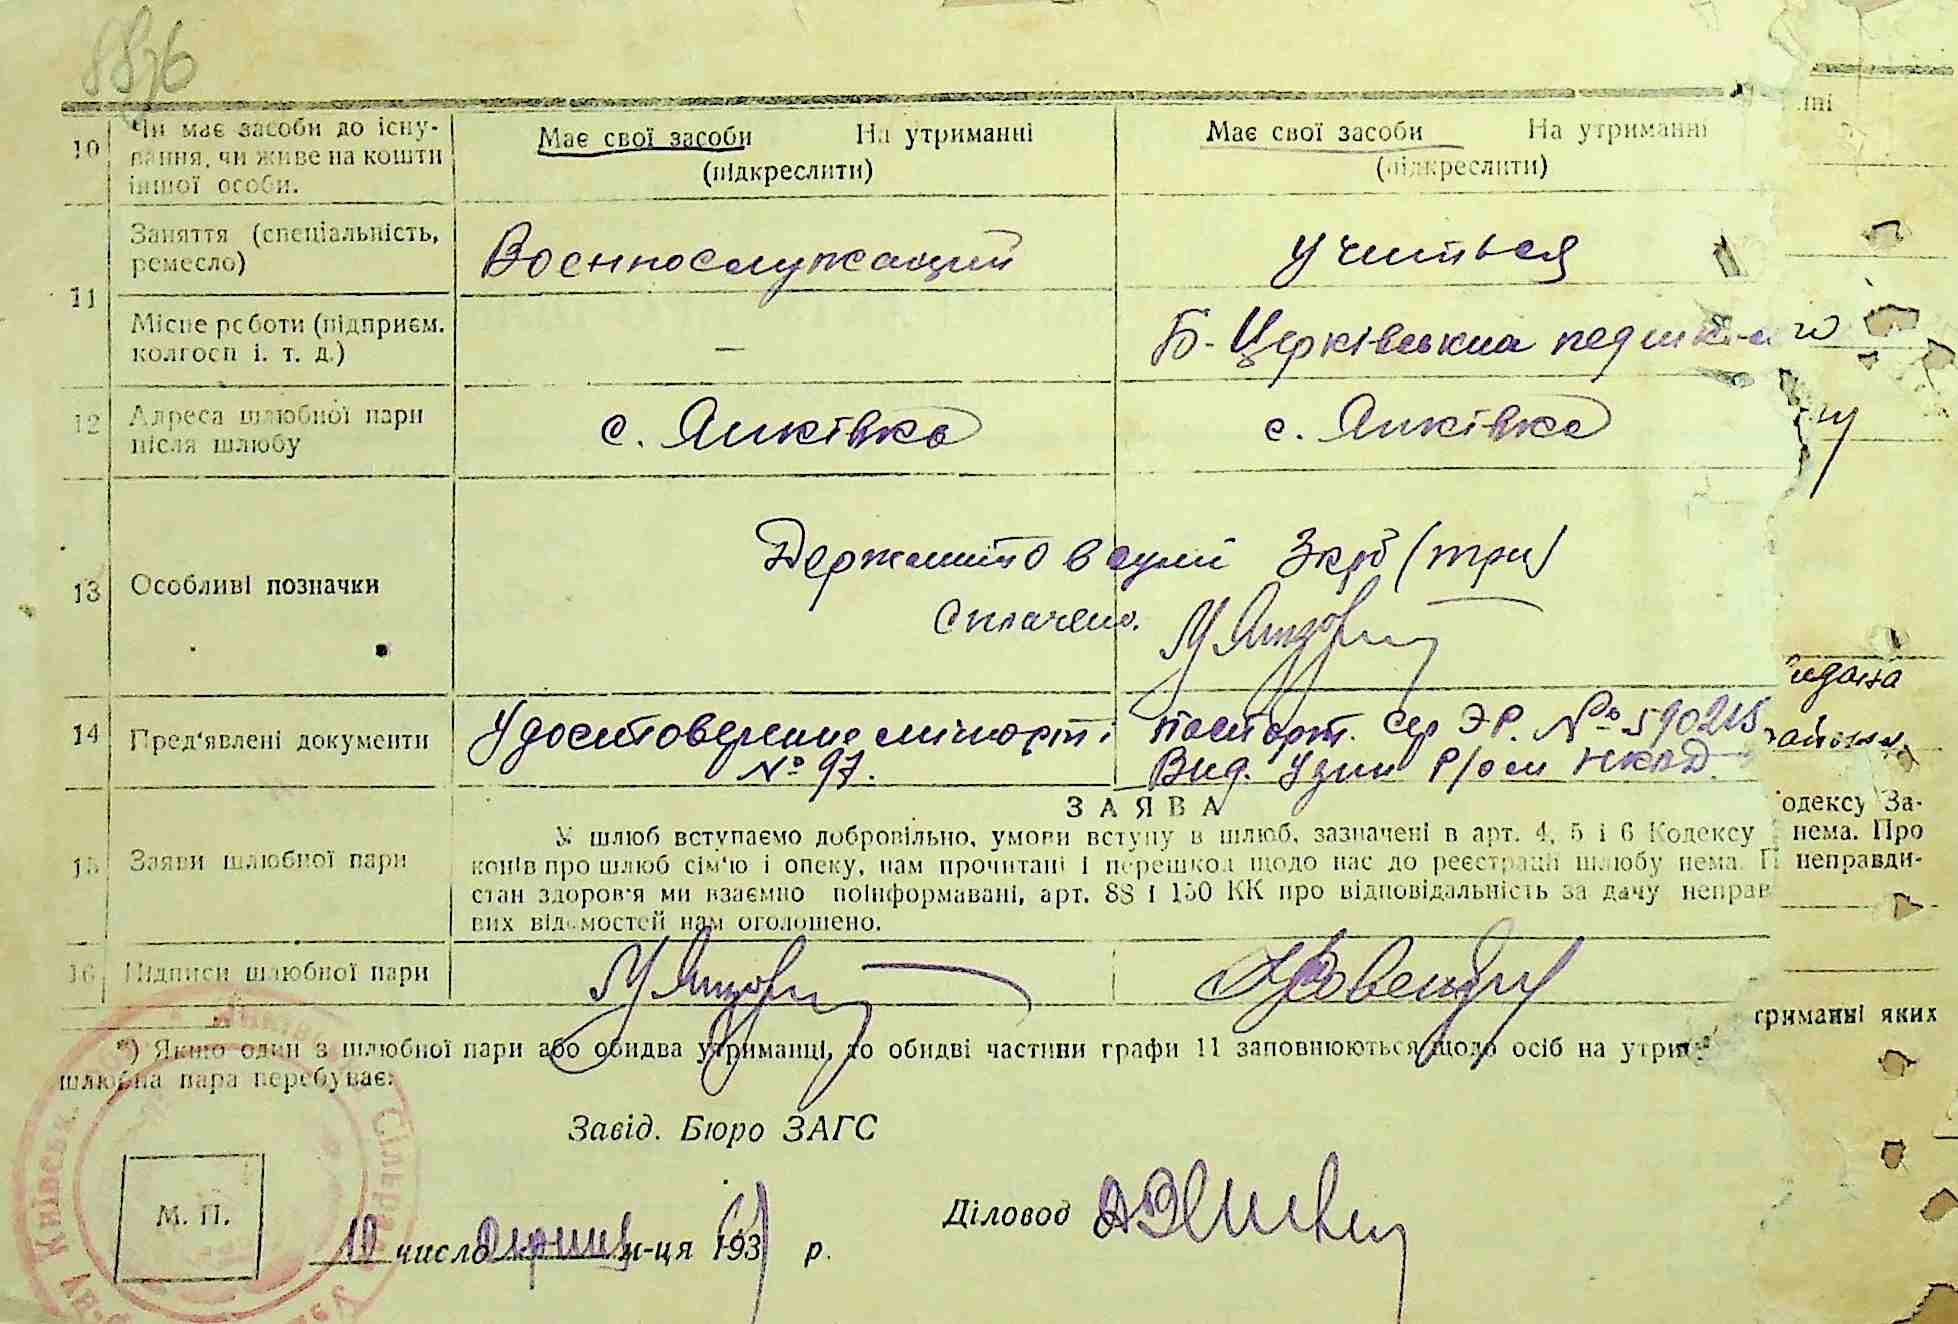 8876
10 Чи має засоби до існу- Має свої засоби На утриманні Має свої засоби На утриманні
вання, чи живе на кошти (підкреслити) (підкреслити)
іншої особи.
11 Заняття (спеціальність, Воєннослужащий учиться
ремесло)
Місце роботи (підприєм. — Б-Церківська
колгосп і. т. д.)
12 Адреса шлюбної пари с. Янківка с. Янківка
після шлюбу
13 Особливі позначки
Держмито в сумі 3 крб (три)
сплачено.
14 Пред'явлені документи Удостоверение паспорт. Сер ЭР. № 590215
№ 97. Вид. Узин Р/ом НКВД
видана
ЗАЯВА
15 Заяви шлюбної пари У шлюб вступаємо добровільно, умови вступу в шлюб, зазначені в арт. 4, 5 і 6 Кодексу
конів про шлюб сім'ю і опеку, нам прочитані і перешкод щодо нас до реєстрації шлюбу нема. П
стан здоров'я ми взаємно поінформавані, арт. 88 і 150 КК про відповідальність за дачу неправ
вих відомостей нам оголошено.
одексу За-
нема. Про
неправди-
16 Підписи шлюбної пари
триманні яких
*) Якщо один з шлюбної пари або обидва утриманці, то обидві частини графи 11 заповнюються щодо осіб на утрим
шлюбна пара перебуває:
Завід. Бюро ЗАГС
М. П.
Діловод
10 число серпня м-ця 193 р.
Київськ.
Сільрада